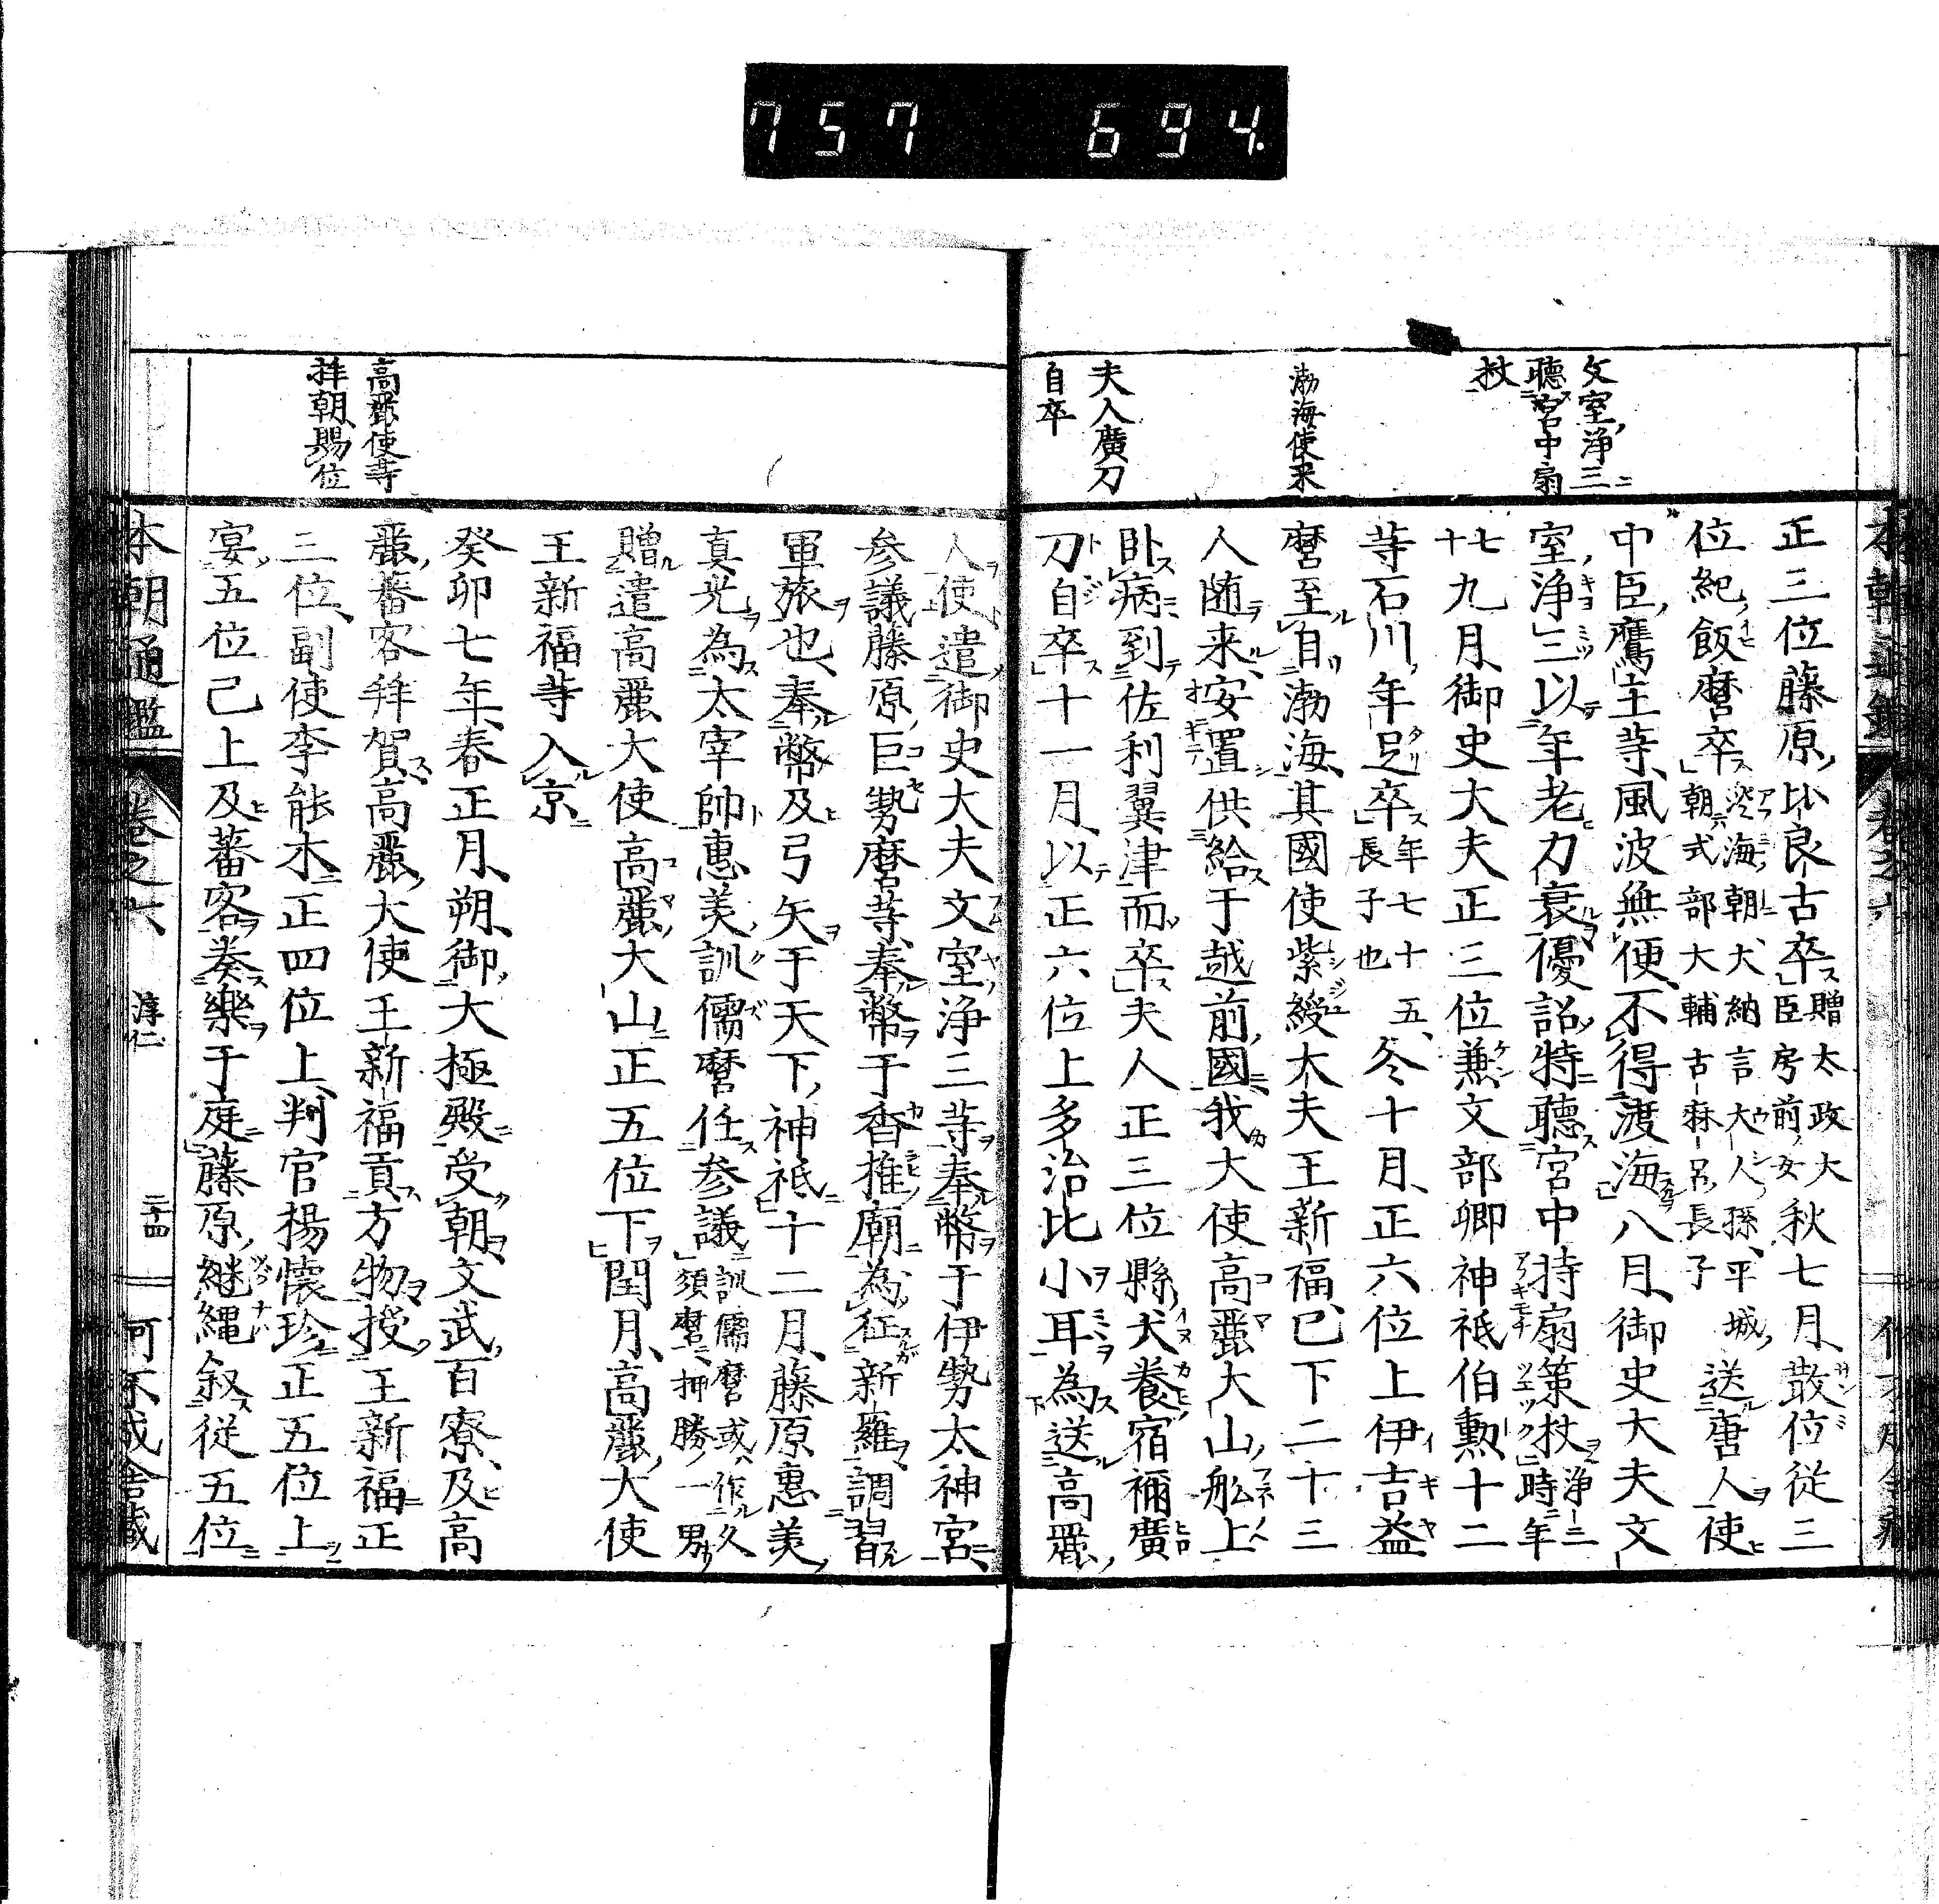 757 694.
文室浄三
聴宮中扇
杖
渤海使来
夫人廣刀
自卒
正三位藤原比良古卒贈太政大臣房前女秋七月散位従三
位紀飯麿卒淡海朝大納言大人孫平城朝式部大輔古麻呂長子送唐人使
中臣鷹主等風波無便不得渡海八月御史大夫文
室浄三以年老力衰優詔特聴宮中持扇策杖浄三時年
七十九月御史大夫正三位兼文部卿神祇伯勲十二
等石川年足卒年七十五長子也冬十月正六位上伊吉益
麿至自渤海其國使紫綬大夫王新福已下二十三
人随来安置供給于越前國我大使高麗大山舩上
臥病到佐利翼津而卒夫人正三位縣犬養宿禰廣
刀自卒十一月以正六位上多治比小耳為送高麗
人使遣御史大夫文室浄三等奉幣于伊勢太神宮
参議藤原巨勢麿等奉幣于香推廟為征新羅調習
軍旅也奉幣及弓矢于天下神祇十二月藤原惠美
真光為太宰帥惠美訓儒麿任参議訓儒麿或作久須麿押勝一男
贈遣高麗大使高麗大山正五位下閏月高麗大使
王新福等入京
癸卯七年春正月朔御大極殿受朝文武百寮及高
麗蕃客拜賀高麗大使王新福貢方物授王新福正
三位副使李能本正四位上判官楊懐珍正五位上
宴五位已上及蕃客奏樂于庭藤原継縄叙従五位
高麗使等
拝朝賜位
本朝通鑑 卷之六 淳仁 二十四